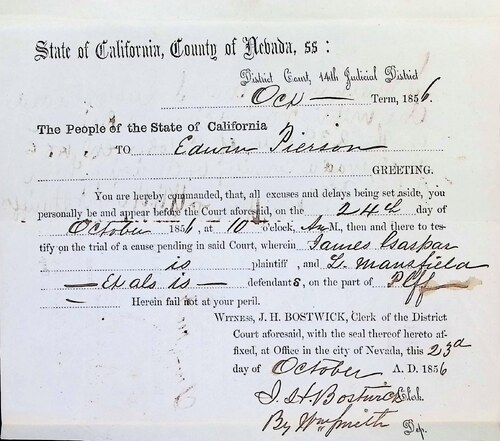 State of California, County of Nevada, ss:
District Court, 14th Judicial District
Oct — Term, 1856.
The People of the State of California
TO Edwin Pierson
GREETING.
You are hereby commanded, that, all excuses and delays being set aside, you
personally be and appear before the Court aforesaid, on the 24th day of
October 1856, at 10 o'clock, A.M., then and there to tes-
tify on the trial of a cause pending in said Court, wherein James Gaspar
is plaintiff, and L. Mansfield
— Et als is — defendants, on the part of Plff
Herein fail not at your peril.
WITNESS, J. H. BOSTWICK, Clerk of the District
Court aforesaid, with the seal thereof hereto af-
fixed, at Office in the city of Nevada, this 23d
day of October A. D. 1856
J. H. Bostwick Clerk.
By Wm Smith Dep.